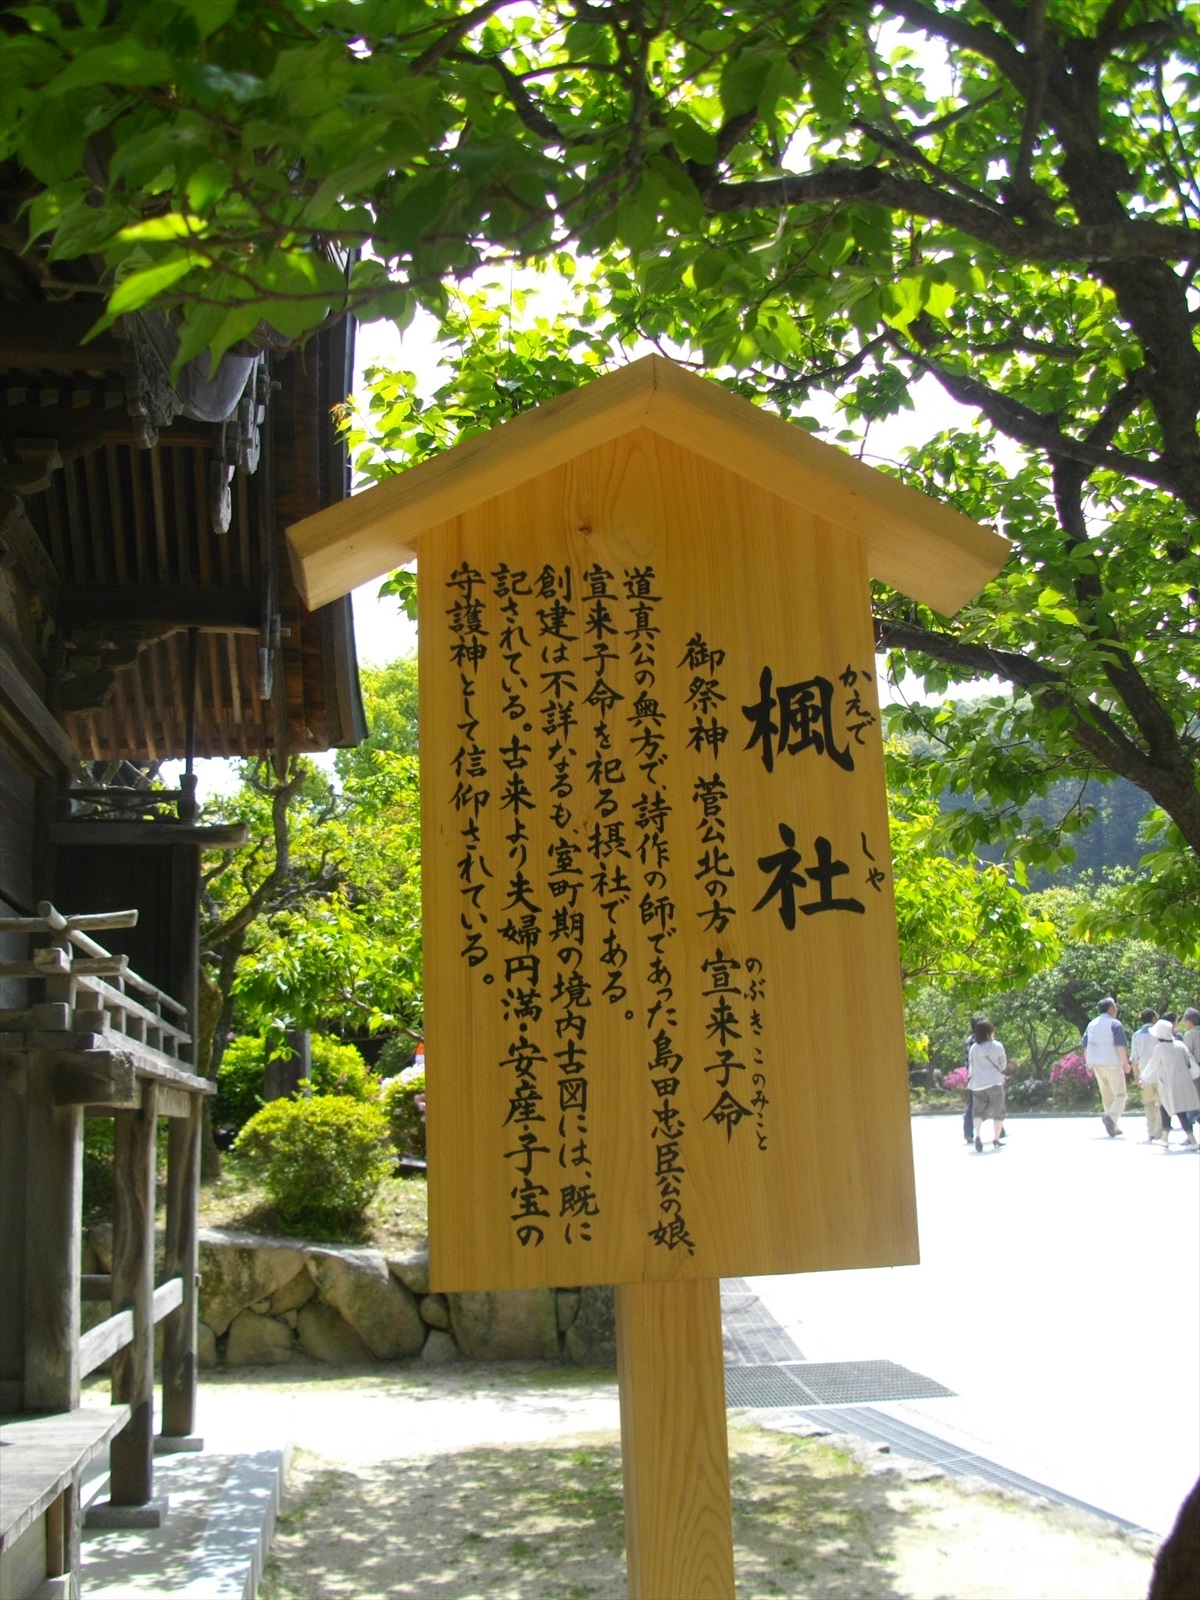 楓社
かえで しゃ
御祭神 菅公北の方 宣来子命
のぶきこのみこと
道真公の奥方で、詩作の師であった島田忠臣公の娘、
宣来子命を祀る摂社である。
創建は不詳なるも、室町期の境内古図には、既に
記されている。古来より夫婦円満・安産・子宝の
守護神として信仰されている。